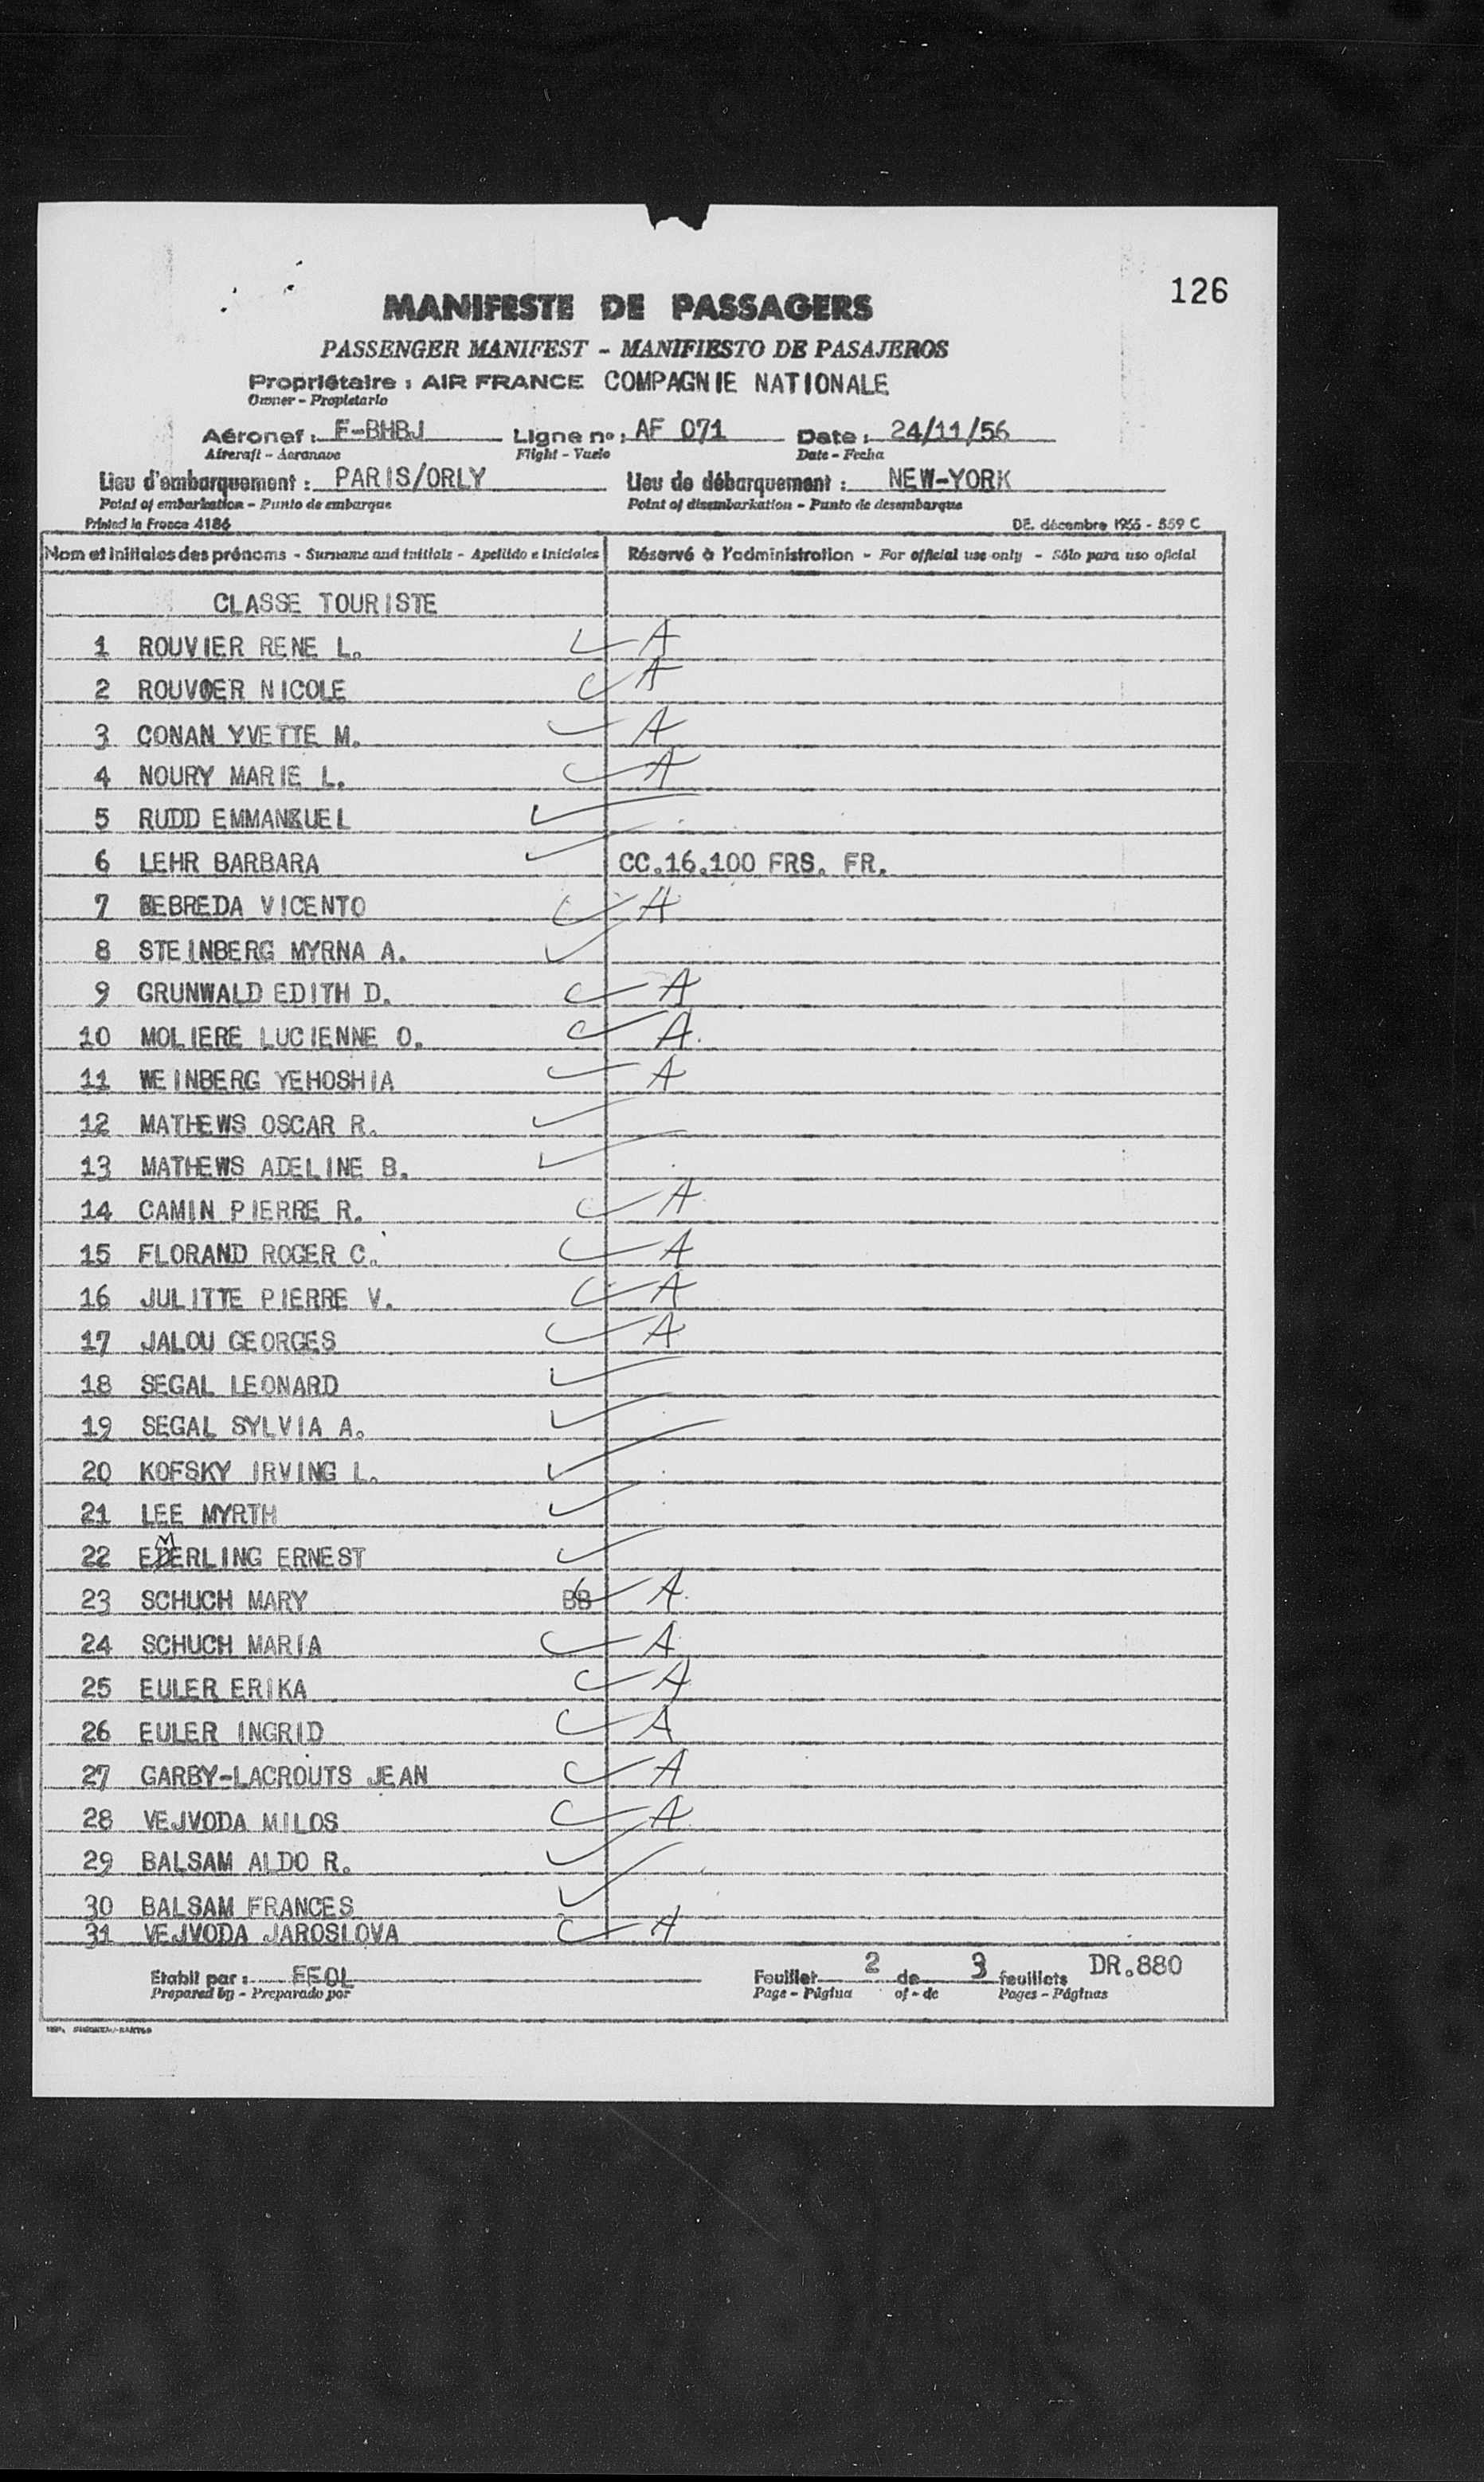 126
MANIFESTE DE PASSAGERS
PASSENGER MANIFEST - MANIFIESTO DE PASAJEROS
Propriétaire : AIR FRANCE COMPAGNIE NATIONALE
Owner - Propietario
Aéronef : F-BHBJ Ligne no : AF 071 Date : 24/11/56
Aircraft - Aeronave Flight - Vuelo Date - Fecha
Lieu d'embarquement : PARIS/ORLY Lieu de débarquement : NEW-YORK
Point of embarkation - Punto de embarque Point of disembarkation - Punto de desembarque
Printed in France 4186 DE. décembre 1955 - 859 C
Nom et initiales des prénoms - Surname and initials - Apellido e iniciales Réservé à l'administration - For official use only - Sólo para uso oficial
CLASSE TOURISTE
1 ROUVIER RENE L. A
2 ROUVOER NICOLE A
3 CONAN YVETTE M. A
4 NOURY MARIE L. A
5 RUDD EMMANZUEL
6 LEHR BARBARA CC.16.100 FRS. FR.
7 BEBREDA VICENTO A
8 STEINBERG MYRNA A.
9 GRUNWALD EDITH D. A
10 MOLIERE LUCIENNE O. A
11 WEINBERG YEHOSHIA A
12 MATHEWS OSCAR R.
13 MATHEWS ADELINE B.
14 CAMIN PIERRE R. A
15 FLORAND ROGER C. A
16 JULITTE PIERRE V. A
17 JALOU GEORGES A
18 SEGAL LEONARD
19 SEGAL SYLVIA A.
20 KOFSKY IRVING L.
21 LEE MYRTH
22 EMERLING ERNEST
23 SCHUCH MARY BB A
24 SCHUCH MARIA A
25 EULER ERIKA A
26 EULER INGRID A
27 GARBY-LACROUTS JEAN A
28 VEJVODA MILOS A
29 BALSAM ALDO R.
30 BALSAM FRANCES
31 VEJVODA JAROSLOVA A
Etabli par : EEOL Feuillet 2 de 3 feuillets DR.880
Prepared by - Preparado por Page - Página of - de Pages - Páginas